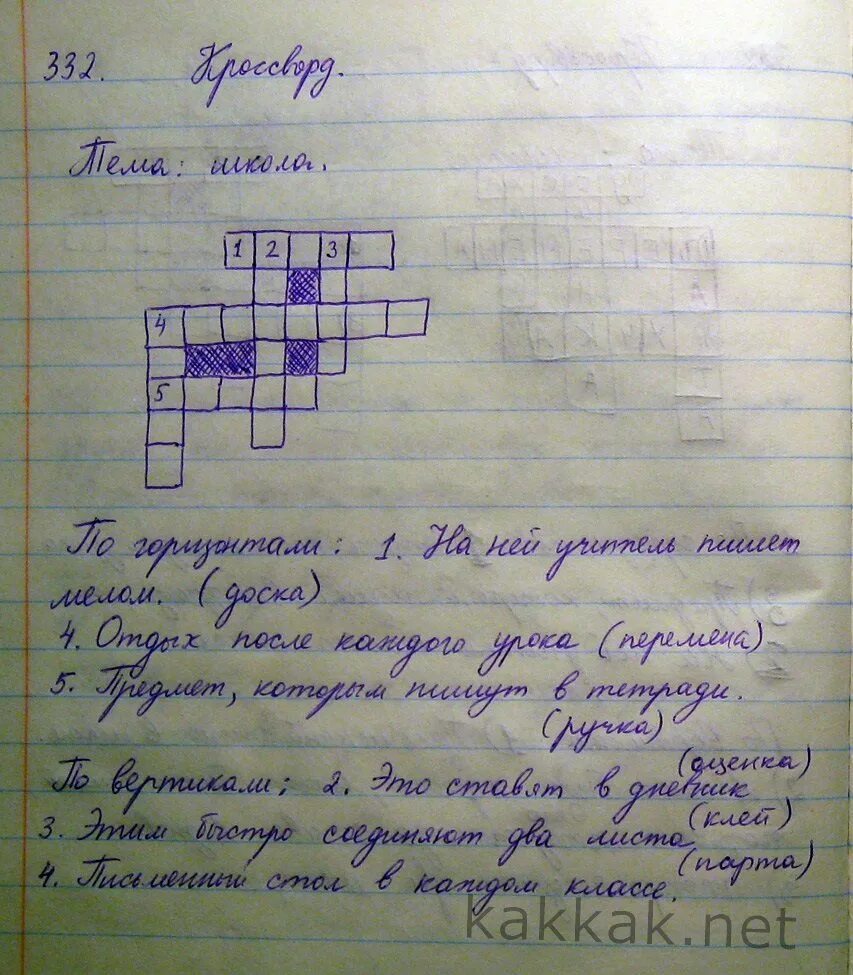 332. Кроссворд.
Тема: школа.
1 2 3
4
5
По горизонтали: 1. На ней учитель пишет
мелом. (доска)
4. Отдых после каждого урока (перемена)
5. Предмет, которым пишут в тетради.
(ручка)
(оценка)
По вертикали: 2. Это ставят в дневник
3. Этим быстро соединяют два листа (клей)
(парта)
4. Письменный стол в каждом классе.
kakkak.net